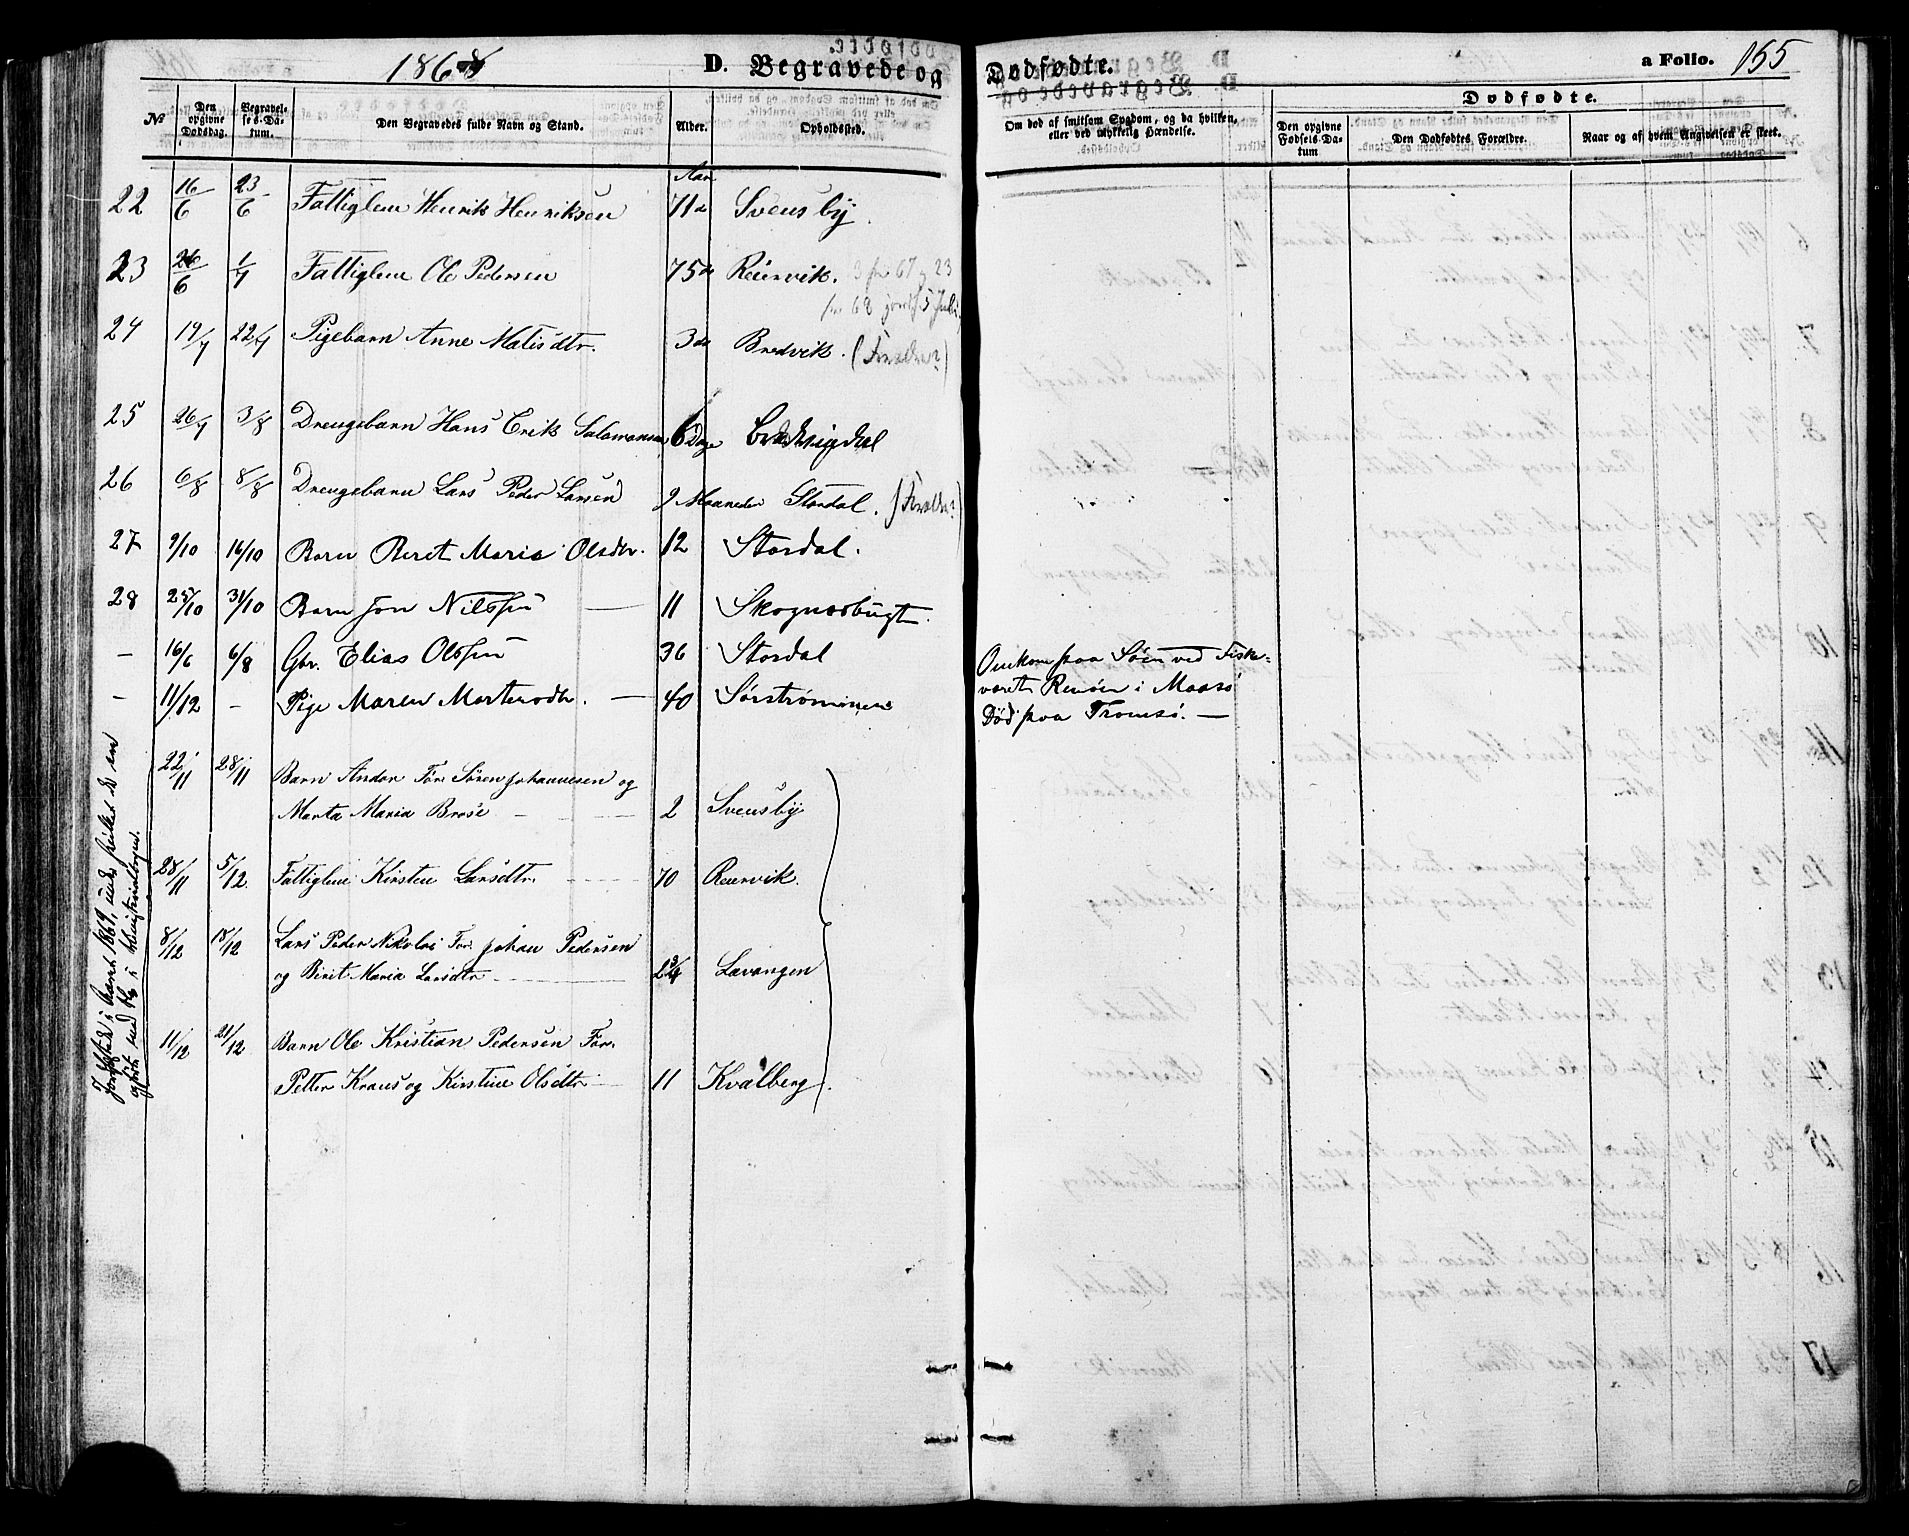 1868
D. Begravede og Dødfødte.
a Folio. 155
Dødfødte.
№ Den opgivne Dødsdag. Begravelses-Datum. Den Begravedes fulde Navn og Stand. Alder. Opholdssted. Om død af smitsom Sygdom, og da hvilken, eller ved ulykkelig Hændelse. Den opgivne Fødsels-Datum Den Dødfødtes Forældre. Naar og af hvem Angivelsen er skeet.
Aar
22 16/6 23/6 Fattiglem Henrik Henriksen 71 Svensby.
23 26/6 1/7 Fattiglem Ole Pedersen 75 Reiervik. 3 fra 67 og 23
fra 68 jordf. 5 Juli
24 19/7 22/7 Pigebarn Anne Matisdtr. 3 Bredvik. (Forældre?)
25 26/7 3/8 Drengebarn Hans Erik Salamonsen 6 Dage Bredvigdal
26 6/8 8/8 Drengebarn Lars Peder Larsen 9 Maaneder Stordal. (Forældre?)
27 9/10 16/10 Barn Beret Maria Olsdtr. 12 Stordal.
28 25/10 31/10 Barn Jon Nilssen — 11 Skognesbugt.
— 16/6 6/8 Gbr. Elias Olssen 36 Stordal Omkom paa Søen ved Fiske-
været Rensøen i Maasø
— 11/12 — Pige Maren Mortensdtr. — 40 Sørstrømmen Død paa Tromsø. —
22/11 28/11 Barn Andor For. Søren Johannesen og
Marta Maria Brose — 2 Svensby
28/11 5/12. Fattiglem Kirsten Larsdtr. 70 Reiervik.
8/12 18/12 Lars Peder Nikolai For. Johan Pedersen
og Berit Maria Larsdtr. — 2 3/4 Lavangen
11/12 21/12 Barn Ole Kristian Pedersen For.
Petter Kraus og Kirstine Olsdtr. — 11 Kvalberg.
Jordfæstet i Aaret 1869, men